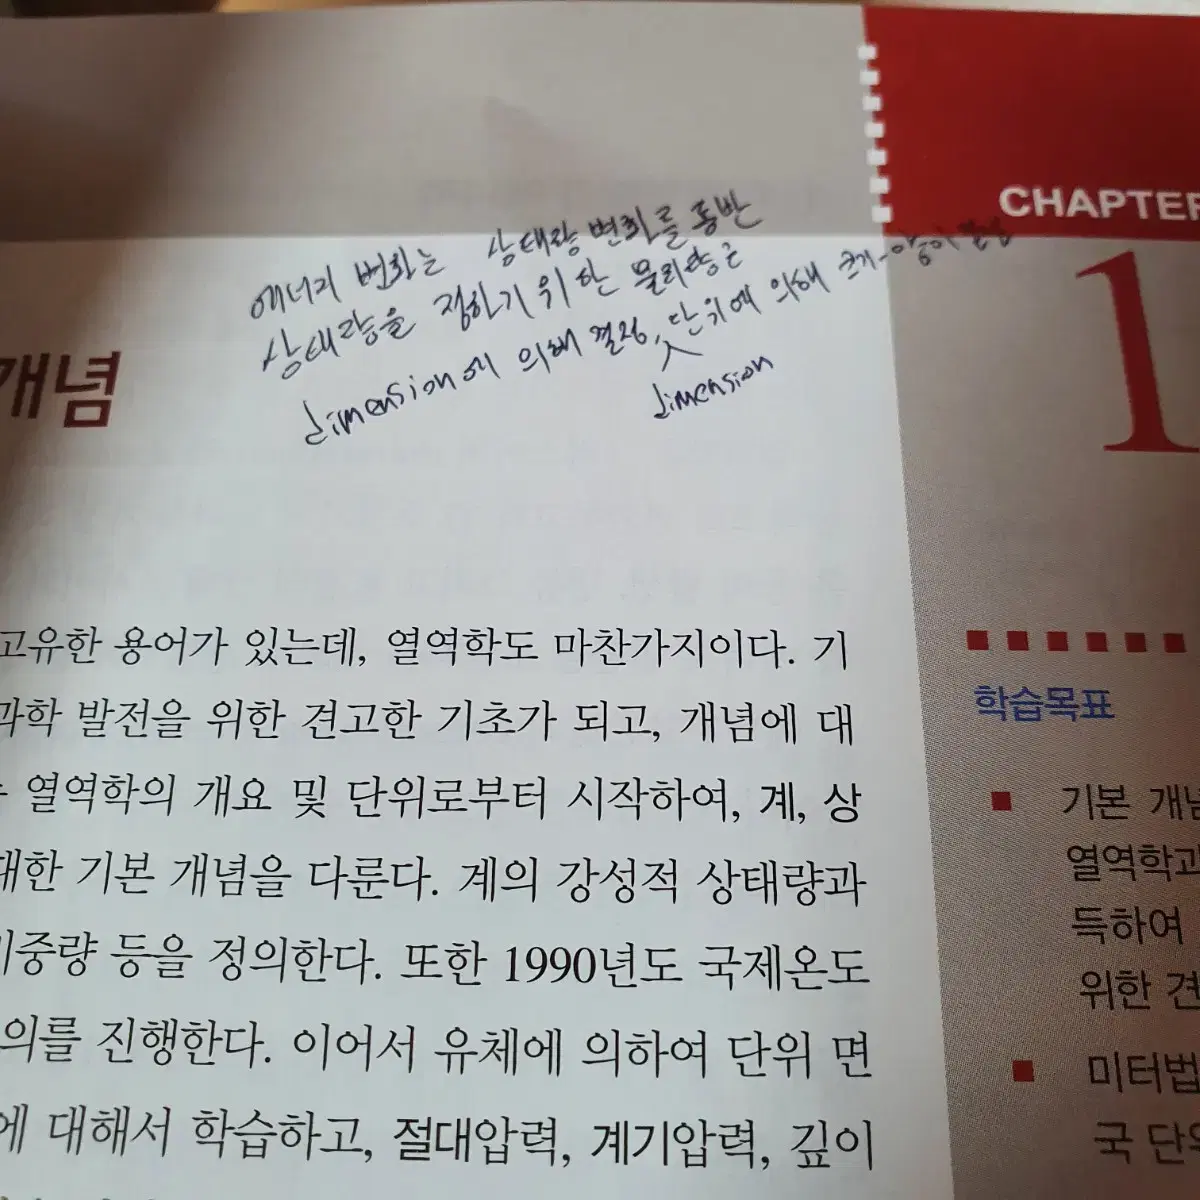 CHAPTER
1
에너지 변화는 상태량 변화를 동반
상태량을 정하기 위한 물리량은
dimension에 의해 결정, 단위에 의해 크기
dimension
개념
고유한 용어가 있는데, 열역학도 마찬가지이다. 기
과학 발전을 위한 견고한 기초가 되고, 개념에 대
열역학의 개요 및 단위로부터 시작하여, 계, 상
대한 기본 개념을 다룬다. 계의 강성적 상태량과
비중량 등을 정의한다. 또한 1990년도 국제온도
의를 진행한다. 이어서 유체에 의하여 단위 면
에 대해서 학습하고, 절대압력, 계기압력, 깊이
학습목표
■ 기본 개념
열역학과
득하여
위한 견
■ 미터법
국 단위